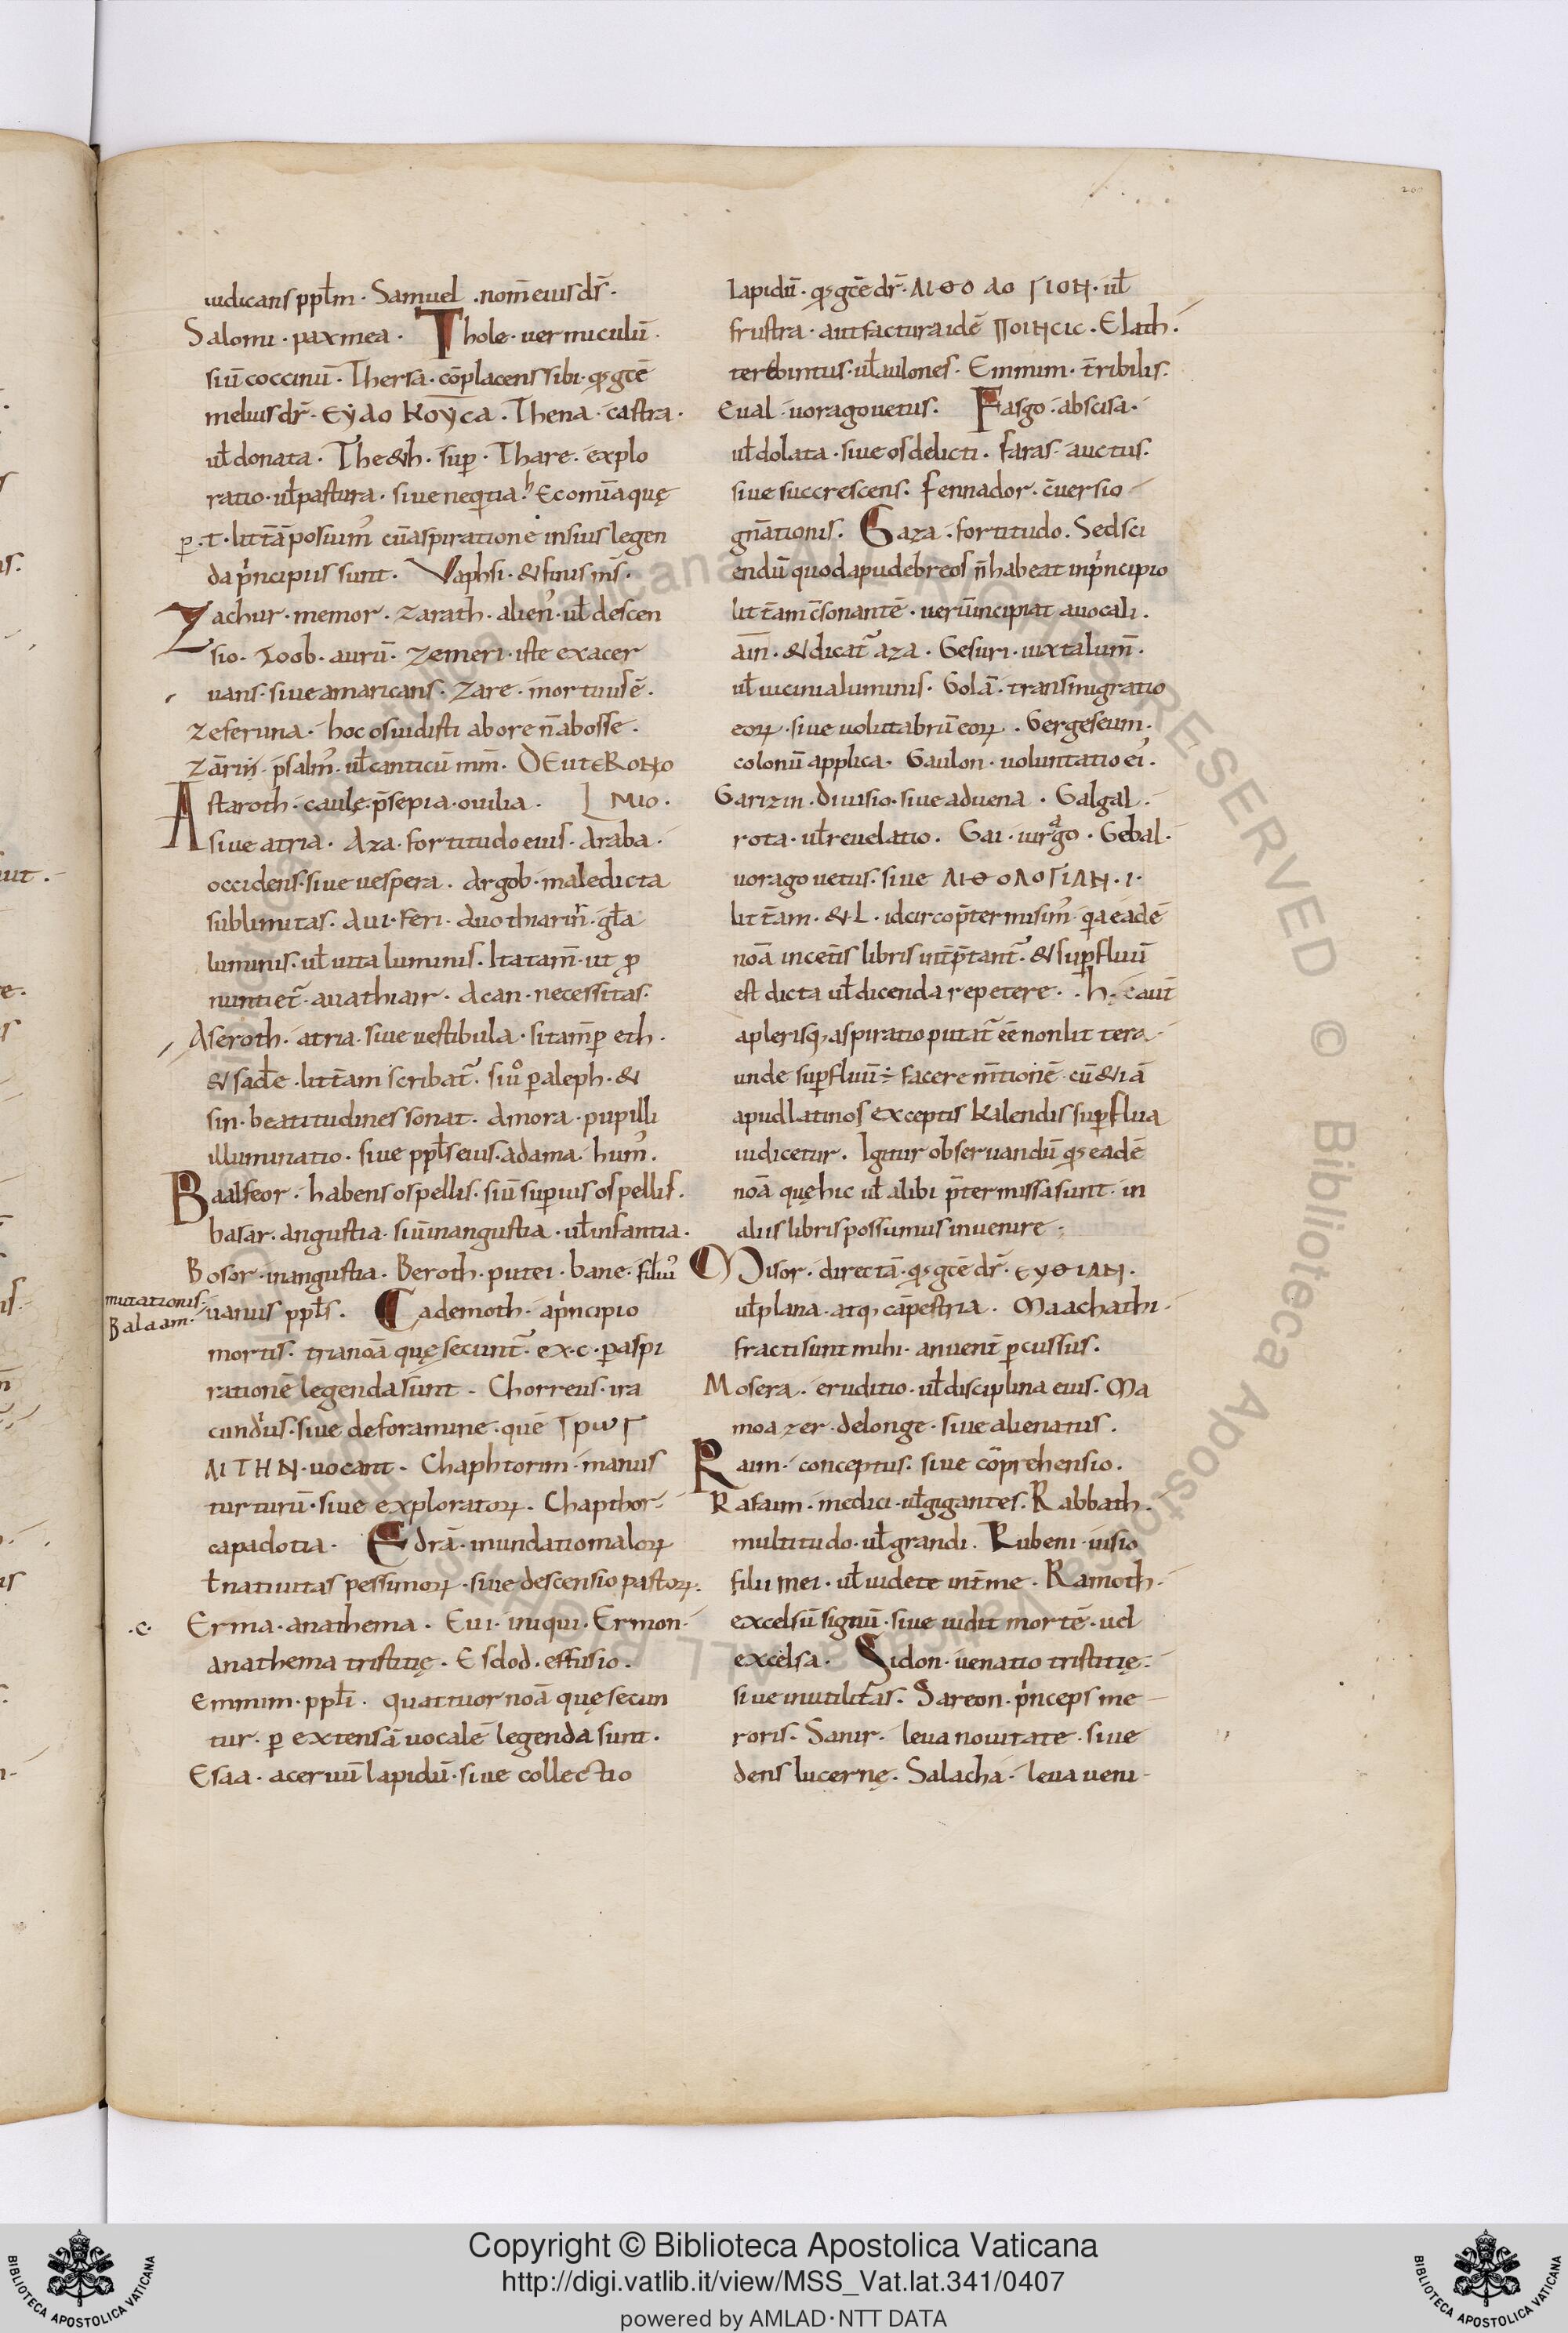 iudicans ppl̄m · Samuel · nom̄ eius dr̄ ·
Salomi · pax mea · Thole · uermiculū ·
siū coccinū · Thersa · cōplacens sibi · qđ gcē
melius dr̄ · ΕΥΔΟΚΟΥCΑ · Thena · castra ·
uƚ donata · The&h · suꝑ · Thare · explo
ratio · uƚ pastura · siue neqͥtia · Ecom̄ia quę
ꝑ · t · litt̄ā posiuim᾽ cū aspiratione insius legen
da pͥncipiis sunt · Vaphsi · & finis m̄s ·
Zachur · memor · Zarath · alien᾽ · uƚ descen
sio · Zoob · aurū · Zemeri · iste exacer
uans · siue amaricans · Zare · mortuus ē ·
Zeferuna · hoc os uidisti ab ore n̄ ab osse ·
Zām̄ · psalm᾽ · uƚ canticū mm̄ · DEUTERONO
Astaroth · caulę · p̄sepia · ouilia · [ MIO ·
siue atria · Aza · fortitudo eius · Araba ·
occidens · siue uespera · Argob · maledicta
sublimitas · Aui · feri · Auothiarir̄ · gƚa
luminis · uƚ uita luminis · Ita tam̄ · ut ꝓ
nuntiet᷑ · auathiair · Acan · necessitas ·
Aseroth · atria · siue uestibula · si tam̄ ꝑ eth ·
& sad̵e · litt̄am scribat᷑ · siu̇ ꝑ aleph · &
sin · beatitudines sonat · Amora · pupilli
illuminatio · siue ppl̄s eius · adama · hum᾽ ·
Baalfeor · habens os pellis · siū superius os pellis ·
basar · angustia · siū in angustia · uƚ infantia ·
Bosor · in angustia · Beroth · putei · bane · filiu᾽
mutationis ·
Balaam ·
uanus ppl̄s · Cademoth · apͥncipio
mortis · tria noā quę secunt᷑ · ex · c · ꝑ aspi
rationē legenda sunt · Chorreus · ira
cundͥus · siue de foramine · quē ΤΡωΓ
ΛΙΤΗΝ · uocant · Chaphtorim · manus
turturū · siue exploratoꝝ · Chapthor ·
capadotia · Edrā · inundatio maloꝝ
ƚ natiuitas pessimoꝝ · siue descensio pastoꝝ ·
· c · Erma · anathema · Eui · iniqui · Ermon ·
anathema tristitię · Esdod · effusio ·
Emmim · ppl̄i · quattuor noā quę secun
tur · ꝑ extensā uocalē legenda sunt ·
Esaa · aceruū lapidū · siue collectio
lapidū · qđ gcē dr̄ · ΛΙΘΟΛΟΓΙΟΝ · uƚ
frustra · aut factura idē ΠΟΙΗCΙC · Elath ·
terebintus · uƚ aulones · Emmim · t̄ribilis ·
Eual · uorago uetus · Fasgo · abscisa ·
uƚ dolata · siue os delicti · faras · auctus ·
siue succrescens · fennador · c̄uersio
gn̄ationis · Gaza · fortitudo · Sed sci
endū quod apud ebreos n̄ habeat in pͥncipio
litt̄am c̄sonantē · uerū incipiat a uocali ·
ain̄ · & dicat᷑ aza · Gesuri · iuxta lum̄ ·
uƚ uicinia luminis · Golā · transmigratio
eoꝝ · siue uolutabrū eoꝝ · Gergeseum ·
colonū applica · Gaulon · uoluntatio ei᾽ ·
Garizin · diuisio · siue aduena · Galgal ·
rota · uƚ reuelatio · Gai · uirgͣgo · Gebal ·
uorago uetus · siue ΛΙΘΟΛΟΓΙΑΝ · I ·
litt̄am · & L · idcirco p̄termisim᾽ · qͥa eadē
noā in cet̄is libris int̄p̄tant᷑ · & suꝑfluū
est dicta uƚ dicenda repetere · h · c̄ aut̄
a plerisq; aspiratio putat᷑ eē non littera ·
unde suꝑfluū ÷ facere m̄tionē · cū & iā
apud latinos exceptis kalendis suꝑflua
iudicetur · Igitur obseruandū qđ eadē
noā quę hic uƚ alibi p̄termissa sunt · in
aliis libris possumus inuenire ·
Misor · directā · qđ gcē dr̄ · ΕΥΘΙΑΝ ·
uƚ plana · atq; cāpestria · Maachathi ·
fracti sunt mihi · an uent̄ ꝑcussus ·
Mosera · eruditio · uƚ disciplina eius · Ma
moazer · de longe · siue alienatus ·
Raim · conceptus · siue cōprehensio ·
Rafaim · medici · uƚ gigantes · Rabbath ·
multitudo · uƚ grandi · Rubeni · uisio
filii mei · uƚ uidete int̄ me · Ramoth ·
excelsū signū · siue uidit mortē · uel
excelsa · Sidon · uenatio tristitię ·
siue inutilitas · Sareon · pͥnceps me
roris · Sanir · leua nouitate · siue
dens lucernę · Salacha · leua ueni ·
Copyright © Biblioteca Apostolica Vaticana
http://digi.vatlib.it/view/MSS_Vat.lat.341/0407
powered by AMLAD·NTT DATA